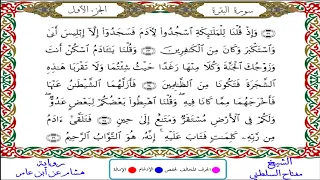 سورة البقرة
الجزء الأول
وَإِذْ قُلْنَا لِلْمَلَٰٓئِكَةِ ٱسْجُدُوا۟ لِءَادَمَ فَسَجَدُوٓا۟ إِلَّآ إِبْلِيسَ أَبَىٰ
وَٱسْتَكْبَرَ وَكَانَ مِنَ ٱلْكَٰفِرِينَ وَقُلْنَا يَٰٓـَٔادَمُ ٱسْكُنْ أَنتَ
وَزَوْجُكَ ٱلْجَنَّةَ وَكُلَا مِنْهَا رَغَدًا حَيْثُ شِئْتُمَا وَلَا تَقْرَبَا هَٰذِهِ
ٱلشَّجَرَةَ فَتَكُونَا مِنَ ٱلظَّٰلِمِينَ فَأَزَلَّهُمَا ٱلشَّيْطَٰنُ عَنْهَا
فَأَخْرَجَهُمَا مِمَّا كَانَا فِيهِ وَقُلْنَا ٱهْبِطُوا۟ بَعْضُكُمْ لِبَعْضٍ عَدُوٌّ
وَلَكُمْ فِى ٱلْأَرْضِ مُسْتَقَرٌّ وَمَتَٰعٌ إِلَىٰ حِينٍ فَتَلَقَّىٰٓ ءَادَمُ
مِن رَّبِّهِۦ كَلِمَٰتٍ فَتَابَ عَلَيْهِ إِنَّهُۥ هُوَ ٱلتَّوَّابُ ٱلرَّحِيمُ
الشيخ
مفتاح السلطني
رواية
هشام عن ابن عامر